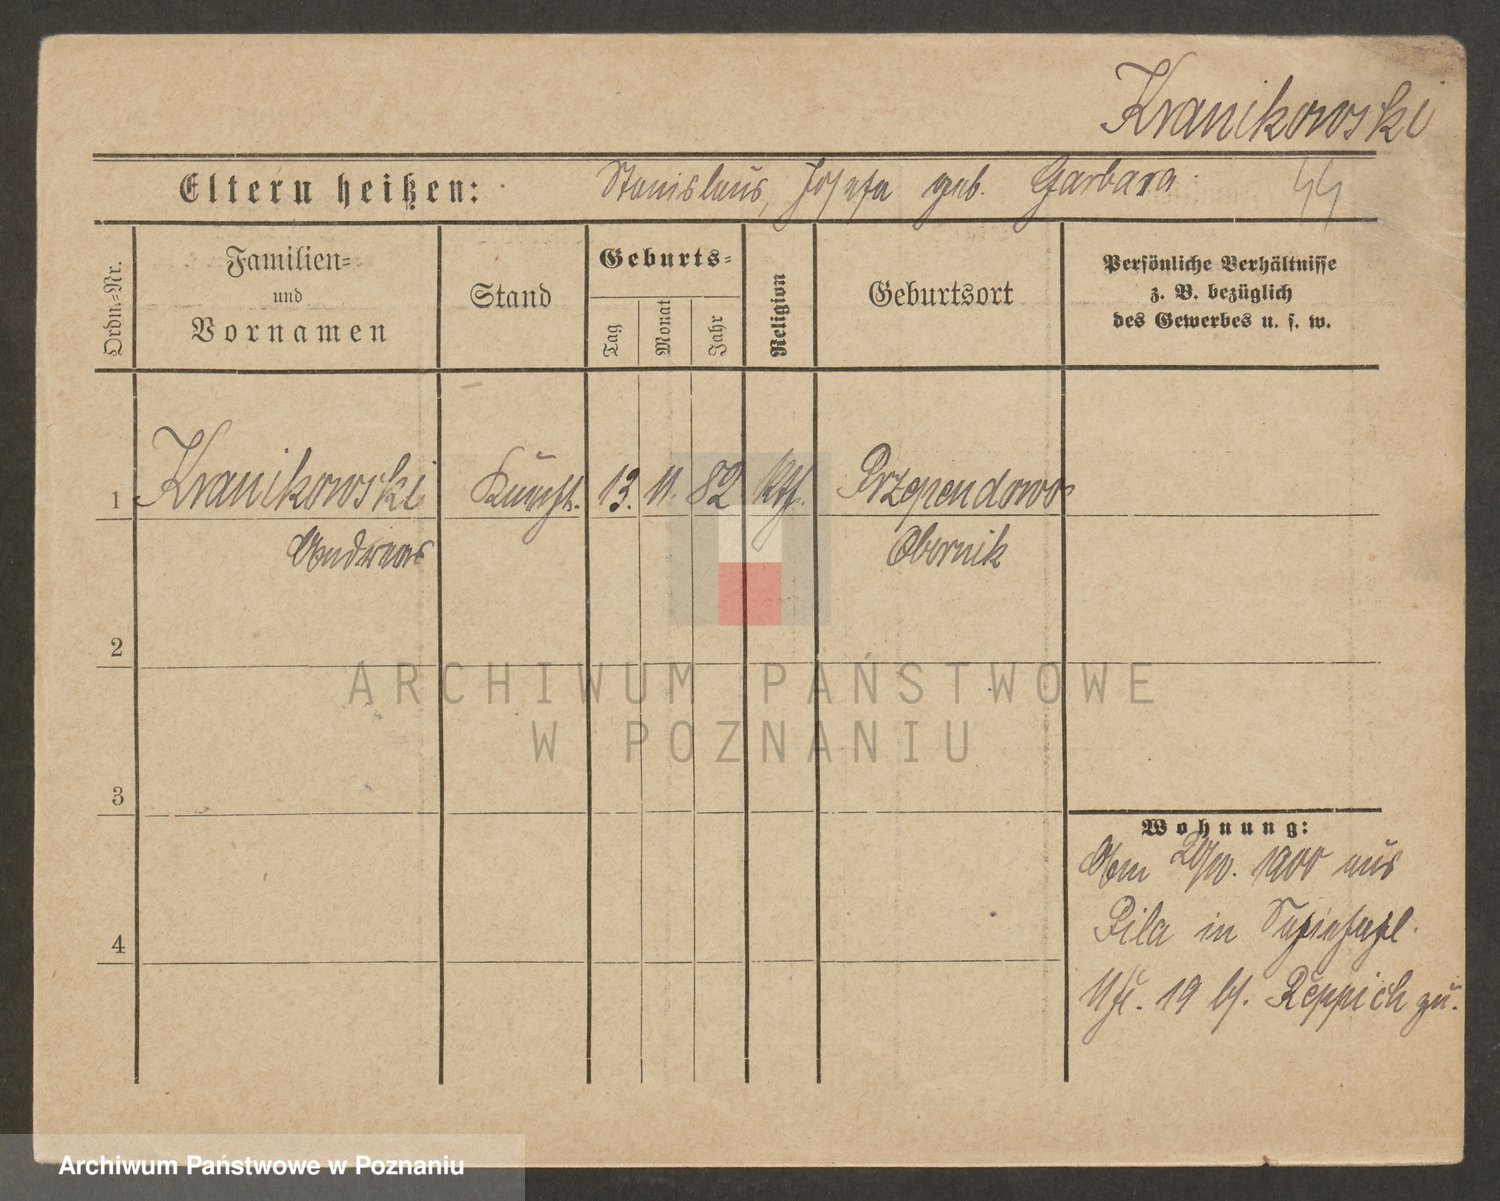 Kranikowski
Eltern heißen: Stanislaus, Josefa geb. Garbara
44
Ordn.-Nr.
Familien-
und
Vornamen
Stand
Geburts-
Tag
Monat
Jahr
Religion
Geburtsort
Persönliche Verhältnisse
z. B. bezüglich
des Gewerbes u. s. w.
1 Kranikowski 13. 11. 82 Kth. Przependowo
Andreas Obornik
2
ARCHIWUM PAŃSTWOWE
W POZNANIU
3
Wohnung:
Am 20/10. 1900 aus
Pila in
19 bh. Reppich zu.
4
Archiwum Państwowe w Poznaniu